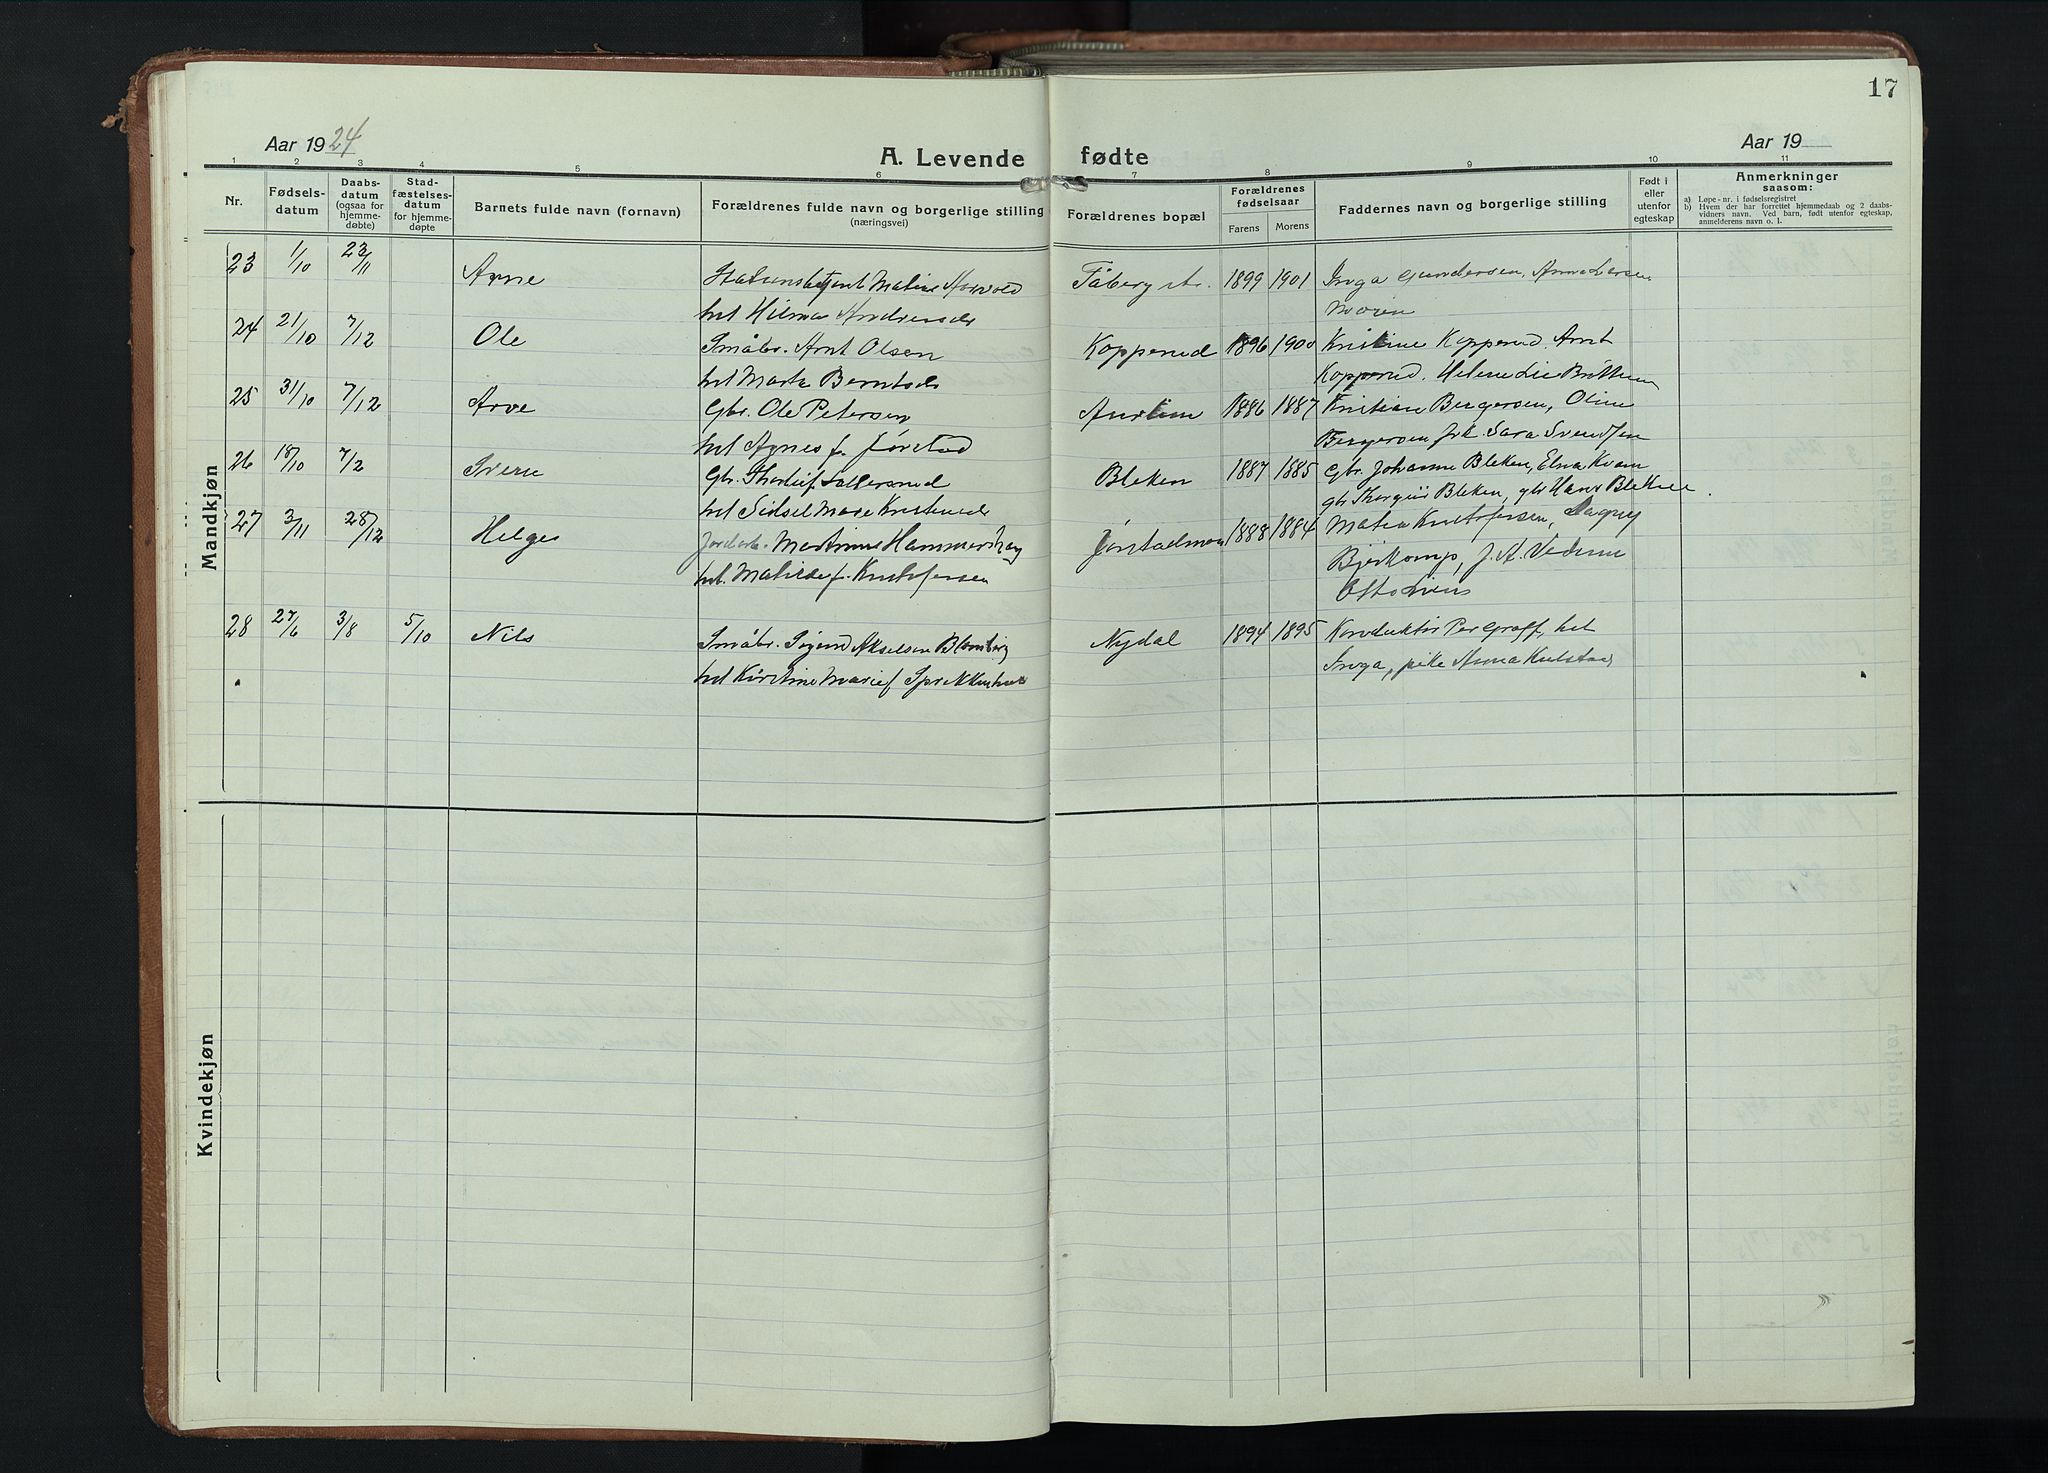 17
Aar 1924
A. Levende fødte
Aar 19
1 2 3 4 5 6 7 8 9 10 11
Nr.
Fødselsdatum
Daabsdatum (ogsaa for hjemmedøbte)
Stadfæstelsesdatum for hjemmedøpte
Barnets fulde navn (fornavn)
Forældrenes fulde navn og borgerlige stilling (næringsvei)
Forældrenes bopæl
Forældrenes fødselsaar
Farens Morens
Faddernes navn og borgerlige stilling
Født i eller utenfor egteskap
Anmerkninger saasom:
a) Løpe-nr. i fødselsregistret
b) Hvem der har forrettet hjemmedaab og 2 daabsvidners navn. Ved barn, født utenfor egteskap, anmelderens navn o. l.
Mandkjøn
23 1/10 23/11 Arne Matias Fåberg st. 1899 1901 Inga Gundersen, Anna Larsen
hst Hilma Moren
24 21/10 7/12 Ole Småbr. Arnt Olsen Kopperud 1896 1900 Kristine Kopperud. Arnt
hst Marte Berntsdr Kopperud. Helene Lie
25 31/10 7/12 Arve Gbr. Ole Petersen 1886 1887 Kristian Bergersen, Oline
hst Agnes f. Jørstad Bergersen frk. Sara Svendsen
26 18/10 7/2 Sverre Gbr. Bleken 1887 1885 Gbr. Johannes Bleken, Elna Kvam
hst Sidsel Marie gbr Bleken, gbr Hans
27 3/11 28/12 Helge Martinus Hammershaug Jørstadmoen 1888 1884
hst. Matilde f. Kristofersen J. A.
Otto
28 27/6 3/8 5/10 Nils Småbr. Sigurd Akselsen Blomberg Nydal 1894 1895 Konduktør Per Graff, hst
hst Kirstine Marie f Inga, pike Anna
Kvindekjøn